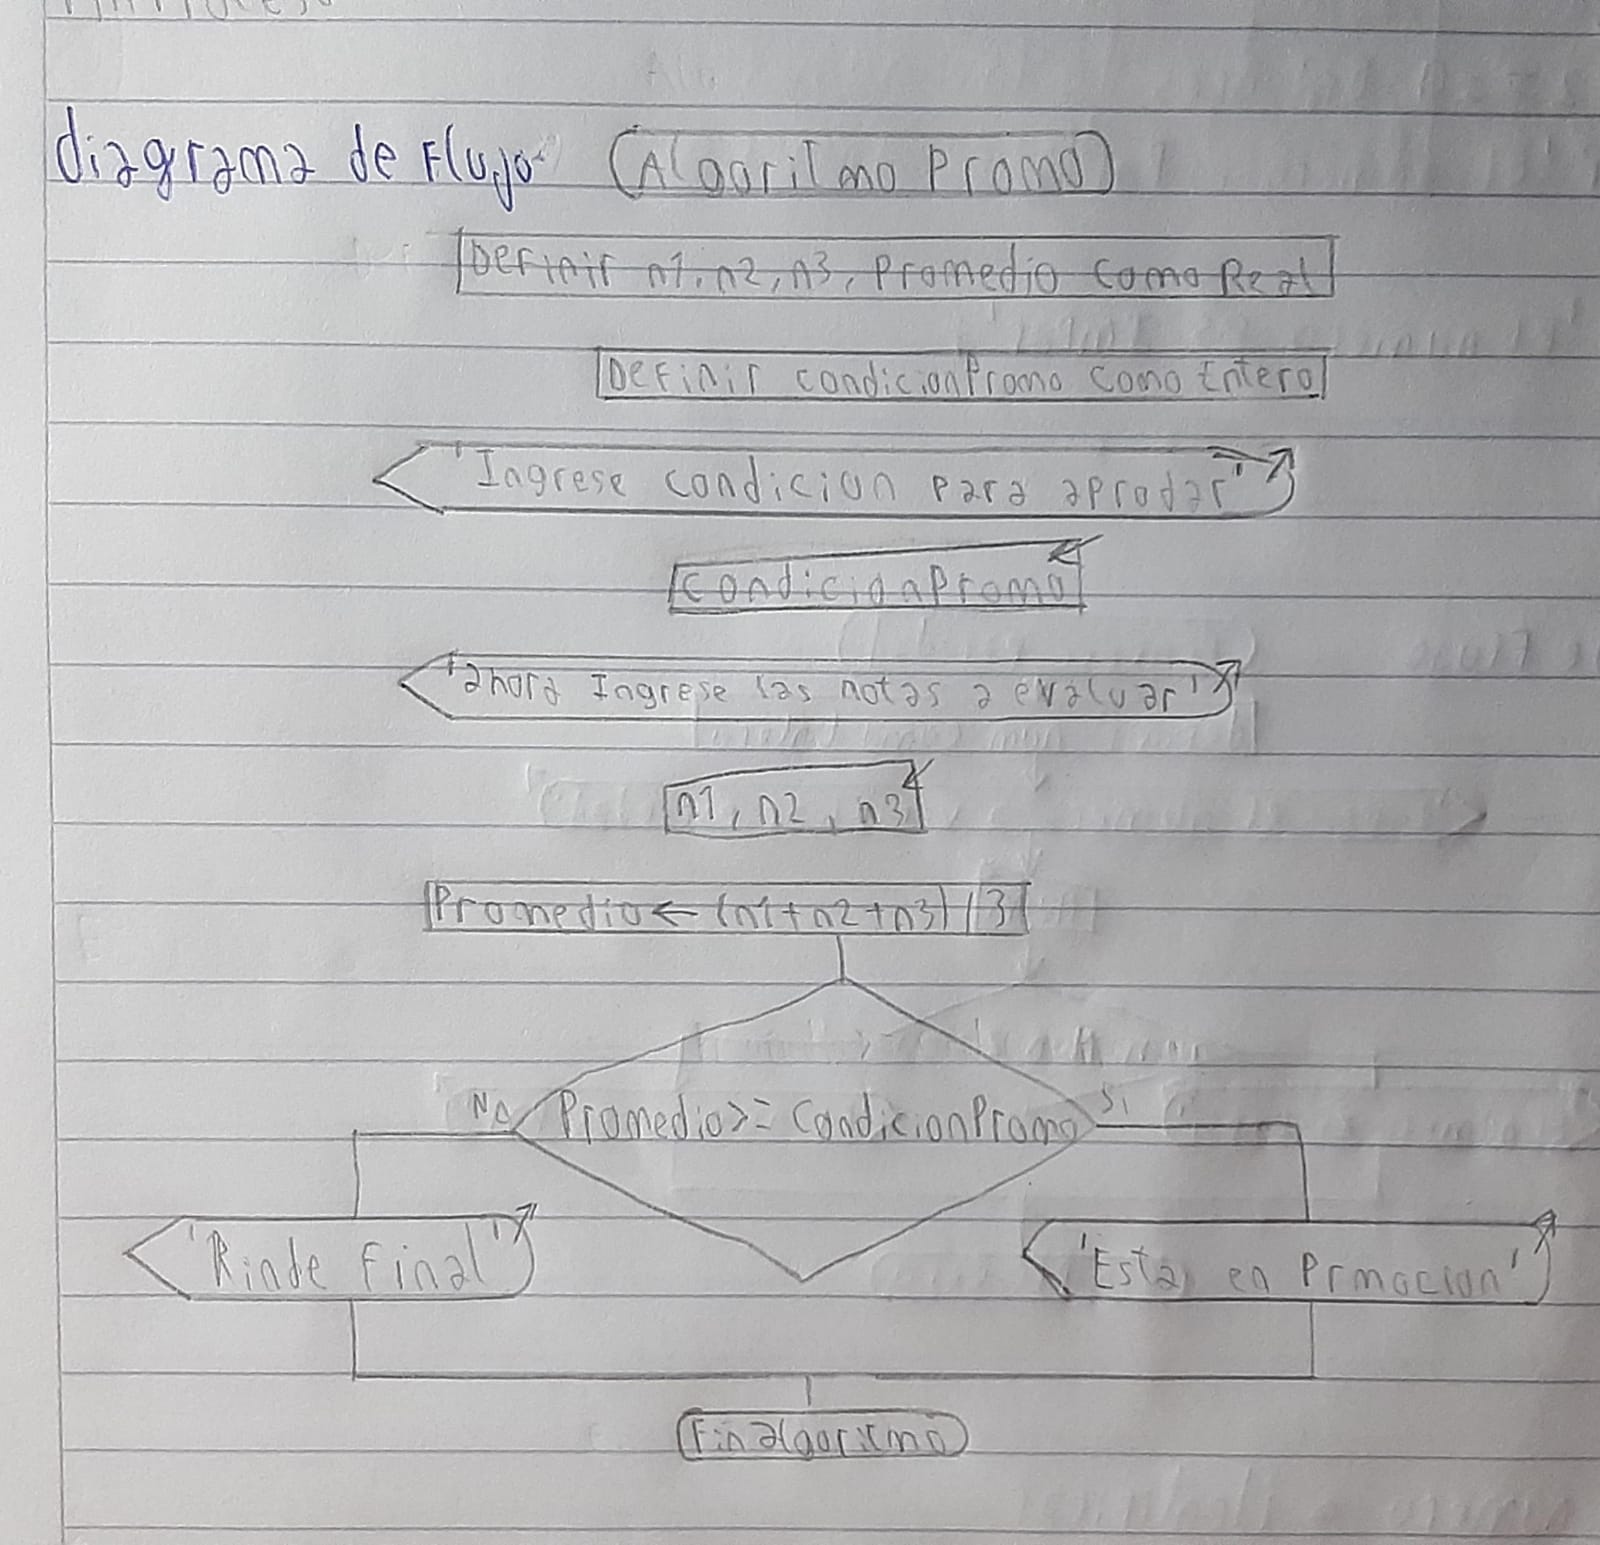 diagrama de Flujo Algoritmo Promo
Definir n1, n2, n3, Promedio Como Real
Definir condicionPromo Como Entero
'Ingrese condicion para aprobar'
CondicionPromo
'ahora Ingrese las notas a evaluar'
n1, n2, n3
Promedio ← (n1+n2+n3) / 3
No Promedio >= CondicionPromo Si
'Rinde final' 'Esta en Prmocion'
Finalgoritmo